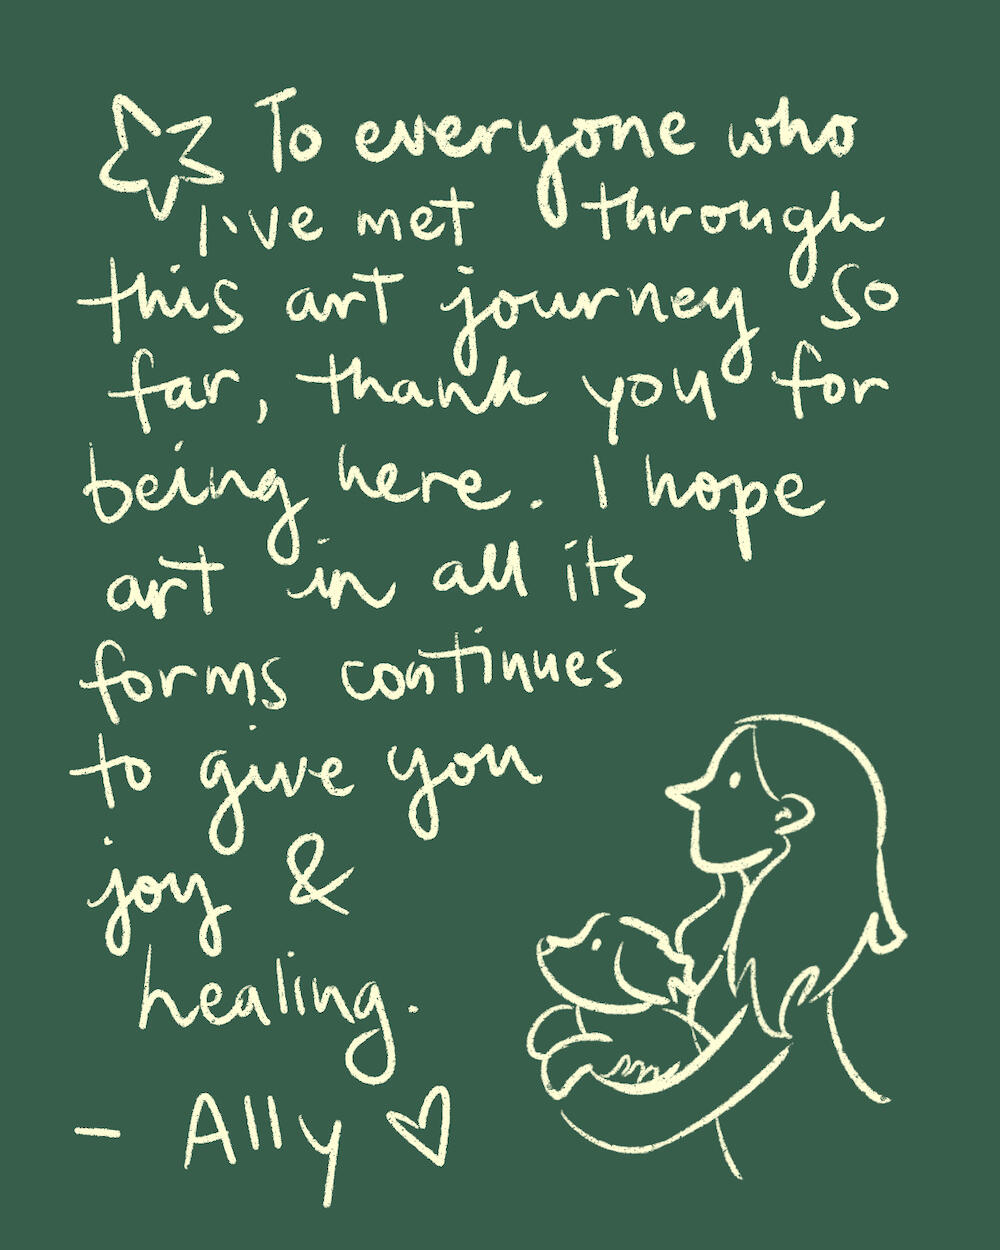 To everyone who
I've met through
this art journey so
far, thank you for
being here. I hope
art in all its
forms continues
to give you
joy &
healing.
- Ally ♡